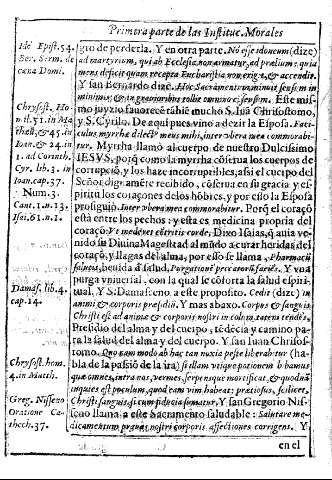 Primera parte de las Institue. Morales
gro de perderla. Y en otra parte. No esse idoneum (dize)
ad martyrium, qui ab Ecclesia non armatur, ad prælium: quia
mens deficit quam recepta Eucharistia non erigit, & accendit.
Y san Bernardo dize. Hoc Sacramentum minuit sensum in
minimis, & in gravioribus tollit omnino cōsensum. Este mis-
mo juyzio fauorece tābie mucho S. Iuā Chrisostomo,
y S. Cyrillo. De aqui pues vino a dezir la Esposa. Fasci-
culus myrrhæ dilectus meus mihi, inter vbera mea commorabi-
tur. Myrrha llamò al cuerpo de nuestro Dulcissimo
IESVS, porq̄ como la myrrha cōserua los cuerpos de
corrupciō, y los haze incorruptibles, assi el cuerpo del
Señor dignamēte recebido, cōserua en su gracia y es-
piritu los coraçones de los hōbres, y por esso la Esposa
prosiguio. Inter vbera mea commorabitur. Porq̄ el coraçō
està entre los pechos: y esta es medicina propria del
coraçō. Vt medenet cōtritis corde. Dixo Isaias, q̄ auia ve-
nido su Diuina Magestad al mūdo a curar heridas del
coraçō, y llagas del alma, por esso se llama, Pharmaciū
salutis, beuida d̄ salud, Purgatione peccatorū faciēs. Y vna
purga vniuersal, con la qual se cōforta la salud espiri-
tual. Y S. Damasceno a este proposito. Cedit (dize) in
animi & corporis præsidiū. Y mas abaxo. Corpus & sanguis
Christi est ad animæ & corporis nostri in columitatem tendēs.
Presidio del alma y del cuerpo, tēdēcia y camino pa-
ra la salud del alma y del cuerpo. Y san Iuan Chrisos-
tomo. Quo nam modo ab hac tan nuxia peste liberabitur (ha-
bla de la passiō de la ira) si illam vtique potionem bibamus
quæ omnes, intra nos, vermes, serpensque mortificat, & quodnā
inquies est poculum, quod eam vim habeat: pretiosus, scilicet,
Christi sanguis, si cum fiducia sumatur. Y san Gregorio Nis-
seno llama a este Sacramento saludable: Salutare me-
dicamentum prauas nostri corporis affectiones corrigens. Y
en el
Idē Epist. 54.
Ber. serm. de
cæna Domi.
Chrysost. Ho-
mil. 51. in Ma
theū, & 45. in
Ioan. & 24. in
1. ad Corinth.
Cyr. lib. 3. in
Ioan. cap. 37.
Num. 3.
Cant. 1. n. 13.
Isai. 61. n. 1.
Damas. lib. 4.
cap. 14.
Chrysost. hom.
4. in Matth.
Greg. Nisseno
Oratione Ca-
thech. 37.